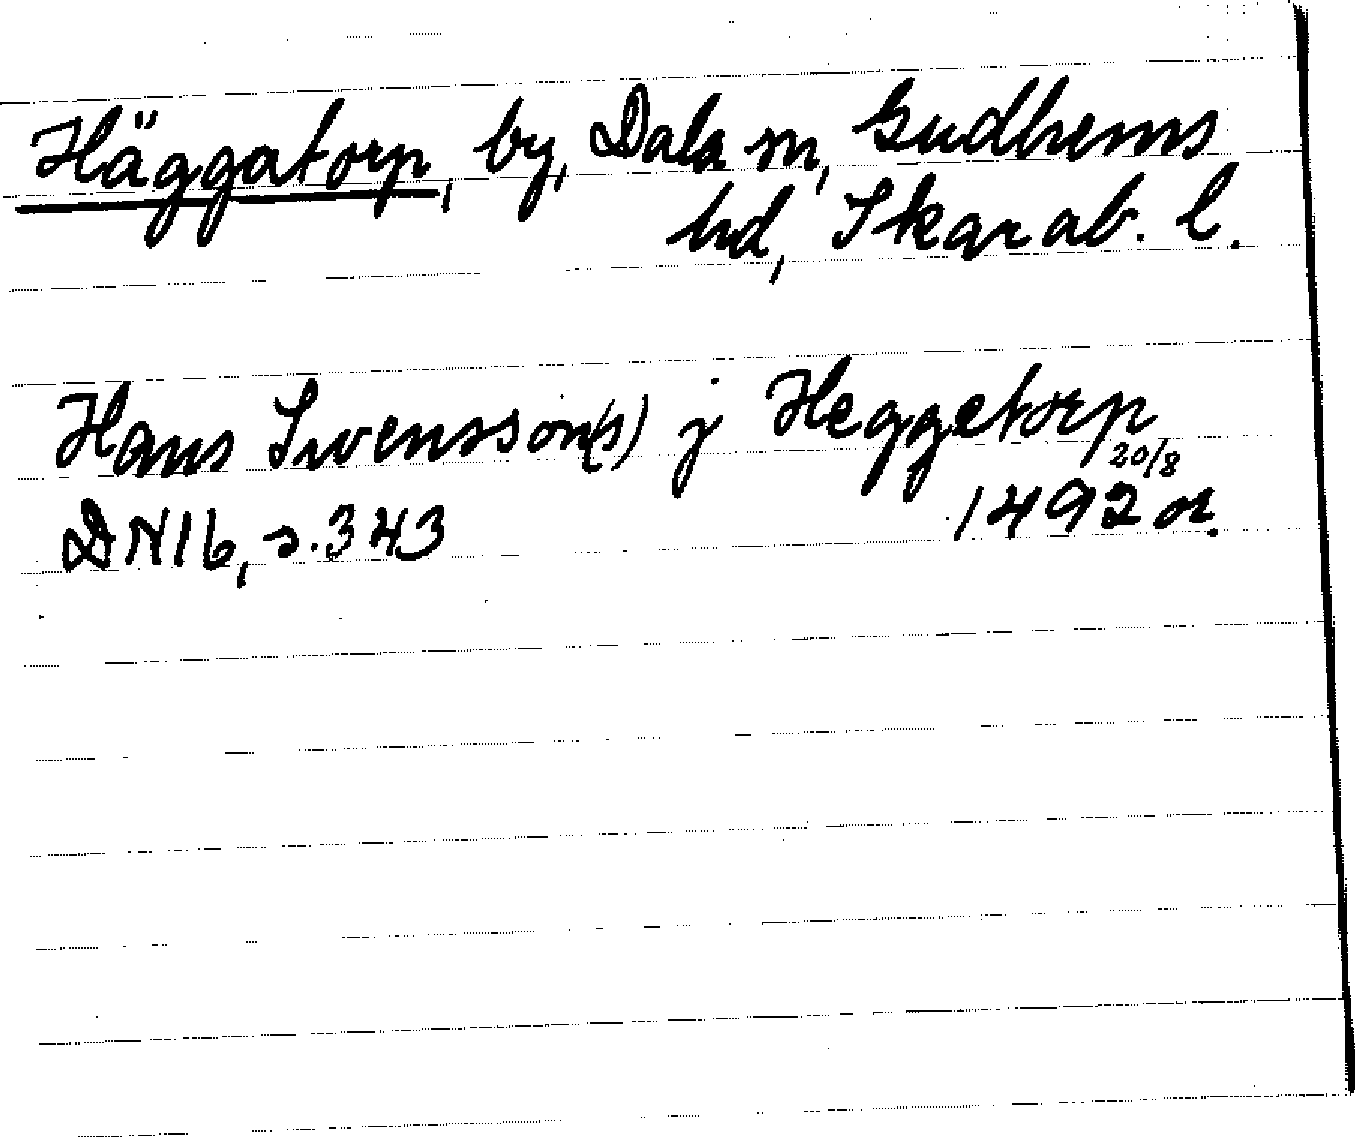 Häggatorp, by, Dala sn, Gudhems
hd, Skarab. l.
Hans Swensson(s) j Heggetorp
20/8
DN 16, s. 343 1492 or.